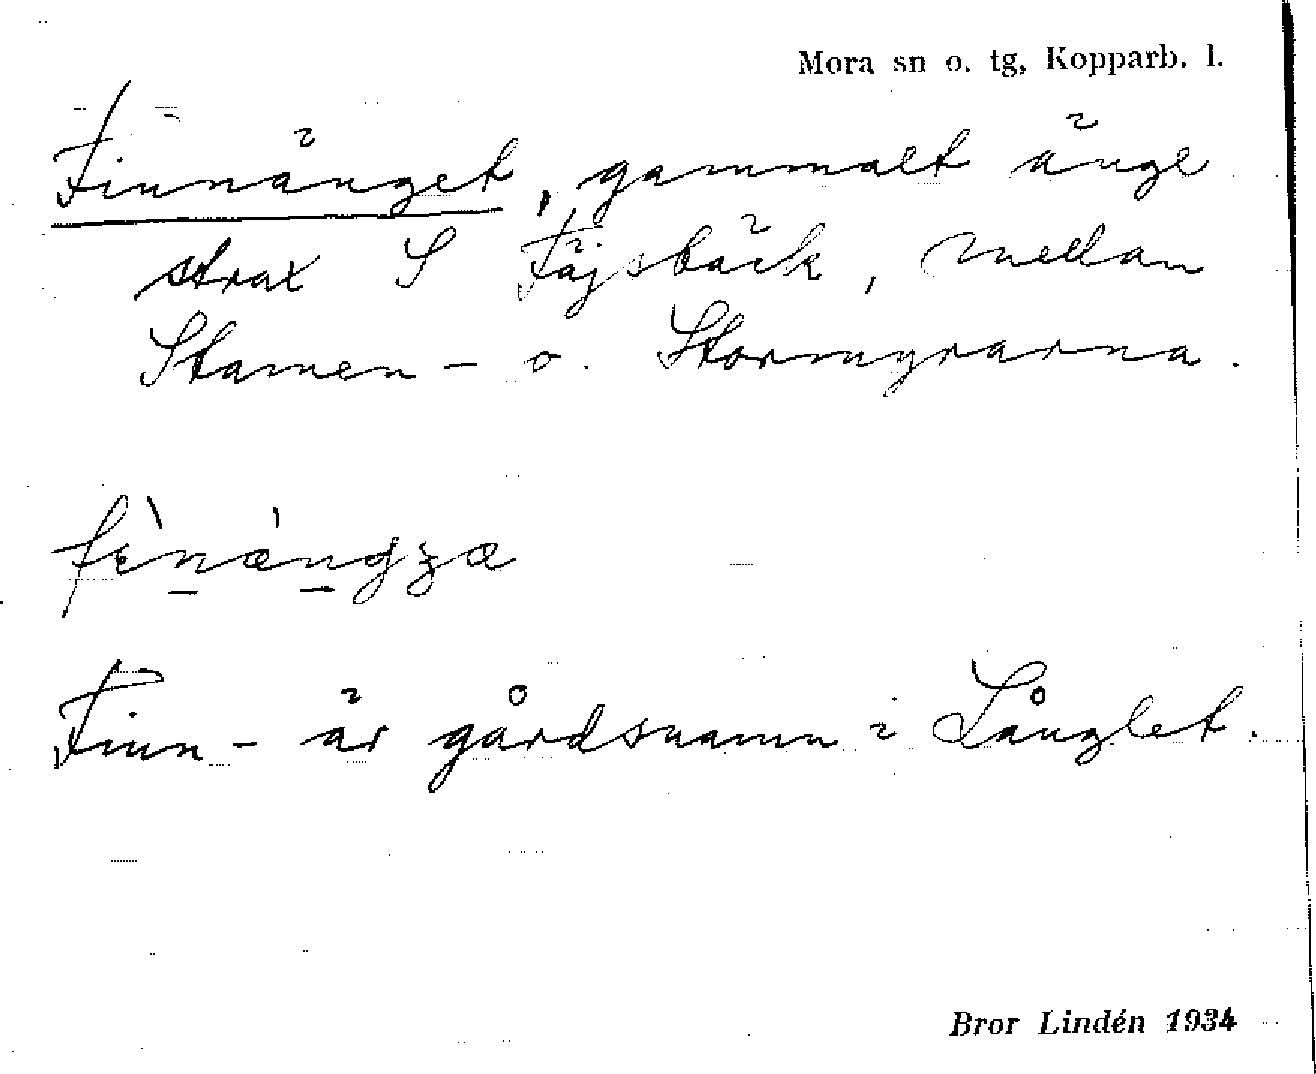 Mora sn o. tg, Kopparb. l.
Finnänget, gammalt änge
strax S Fäjsbäck, mellan
Stamen- o. Stormyrarna.
Finn- är gårdsnamn i Långlet.
Bror Lindén 1934